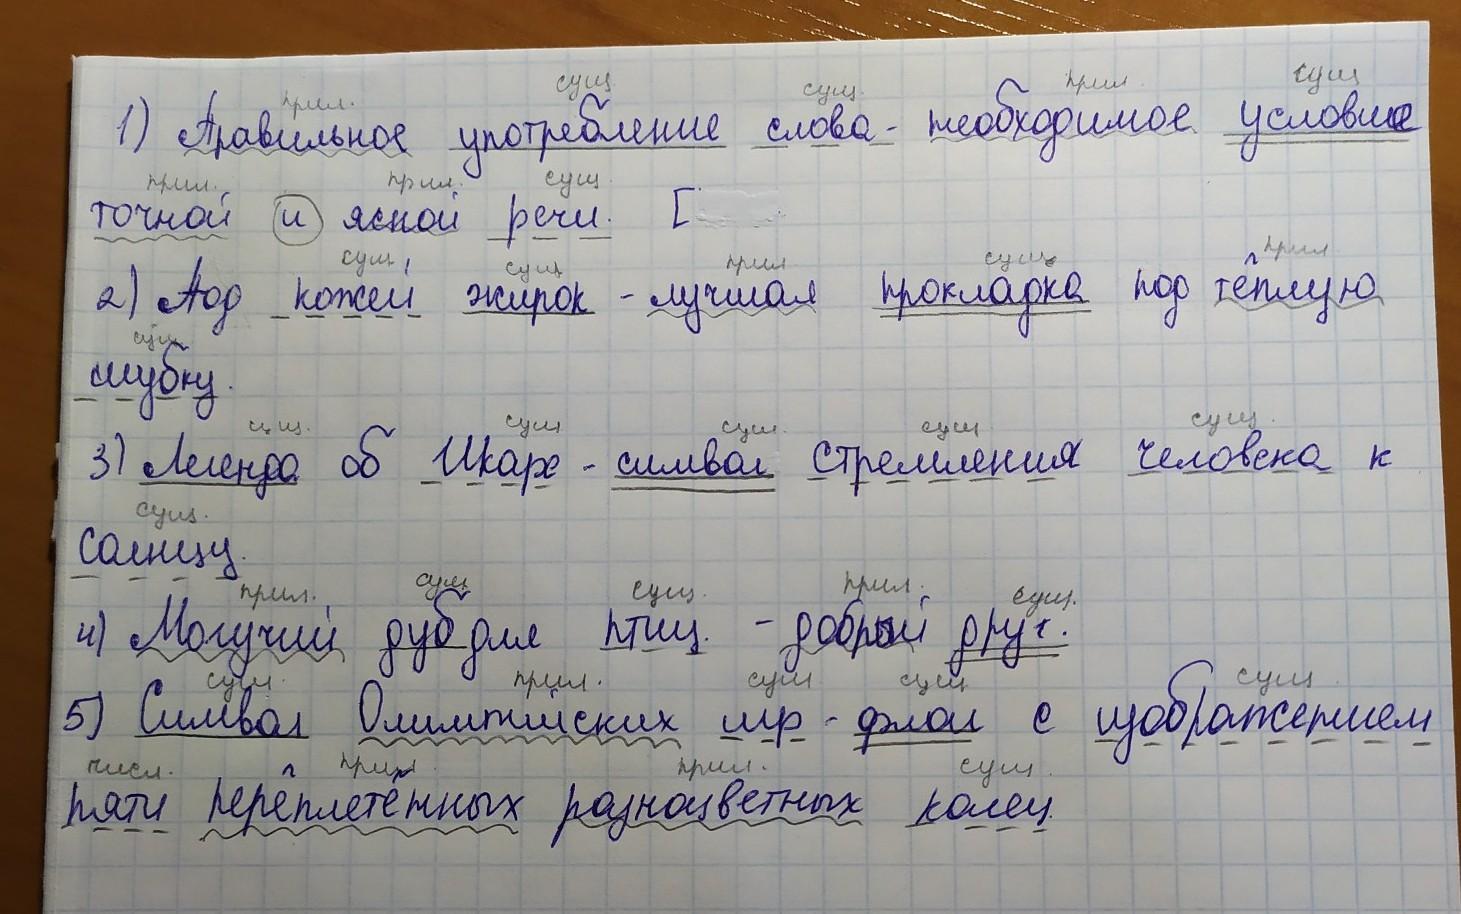 прил. сущ сущ. прил. сущ
1) Правильное употребление слова - необходимое условие
прил. прил. сущ.
точной и ясной речи. [
сущ сущ прил сущ прил
2) Под кожей жирок - лучшая прокладка под тёплую
сущ
шубку.
сущ. сущ сущ. сущ сущ.
3) Легенда об Икаре - символ стремления человека к
сущ.
солнцу.
прил. сущ сущ. прил. сущ.
4) Могучий дуб для птиц. - добрый друг.
сущ. прил. сущ сущ сущ
5) Символ Олимпийских игр - флаг с изображением
числ. прил. прил. сущ.
пяти переплетённых разноцветных колец.